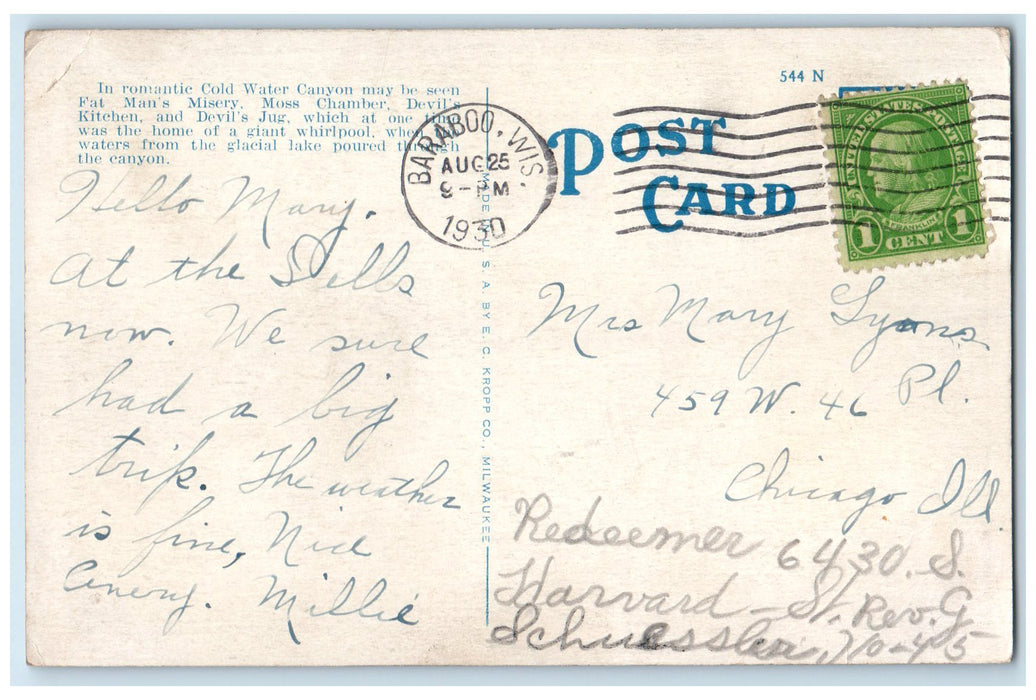 544 N
In romantic Cold Water Canyon may be seen
Fat Man's Misery, Moss Chamber, Devil's
Kitchen, and Devil's Jug, which at one time
was the home of a giant whirlpool, when
waters from the glacial lake poured through
the canyon.
BARABOO, WIS.
AUG 25
9 - M
1930
POST
CARD
UNITED STATES POSTAGE
FRANKLIN
1 CENT 1
MADE IN U. S. A. BY E. C. KROPP CO., MILWAUKEE
Hello Mary.
at the Dells
now. We sure
had a big
trip. The weather
is fine, Nice
Millie
Mrs Mary Lyons.
459 W. 46 Pl.
Chicago Ill.
Redeemer 6430. S.
Harvard - St. Rev. G
Schuessler, 10-45